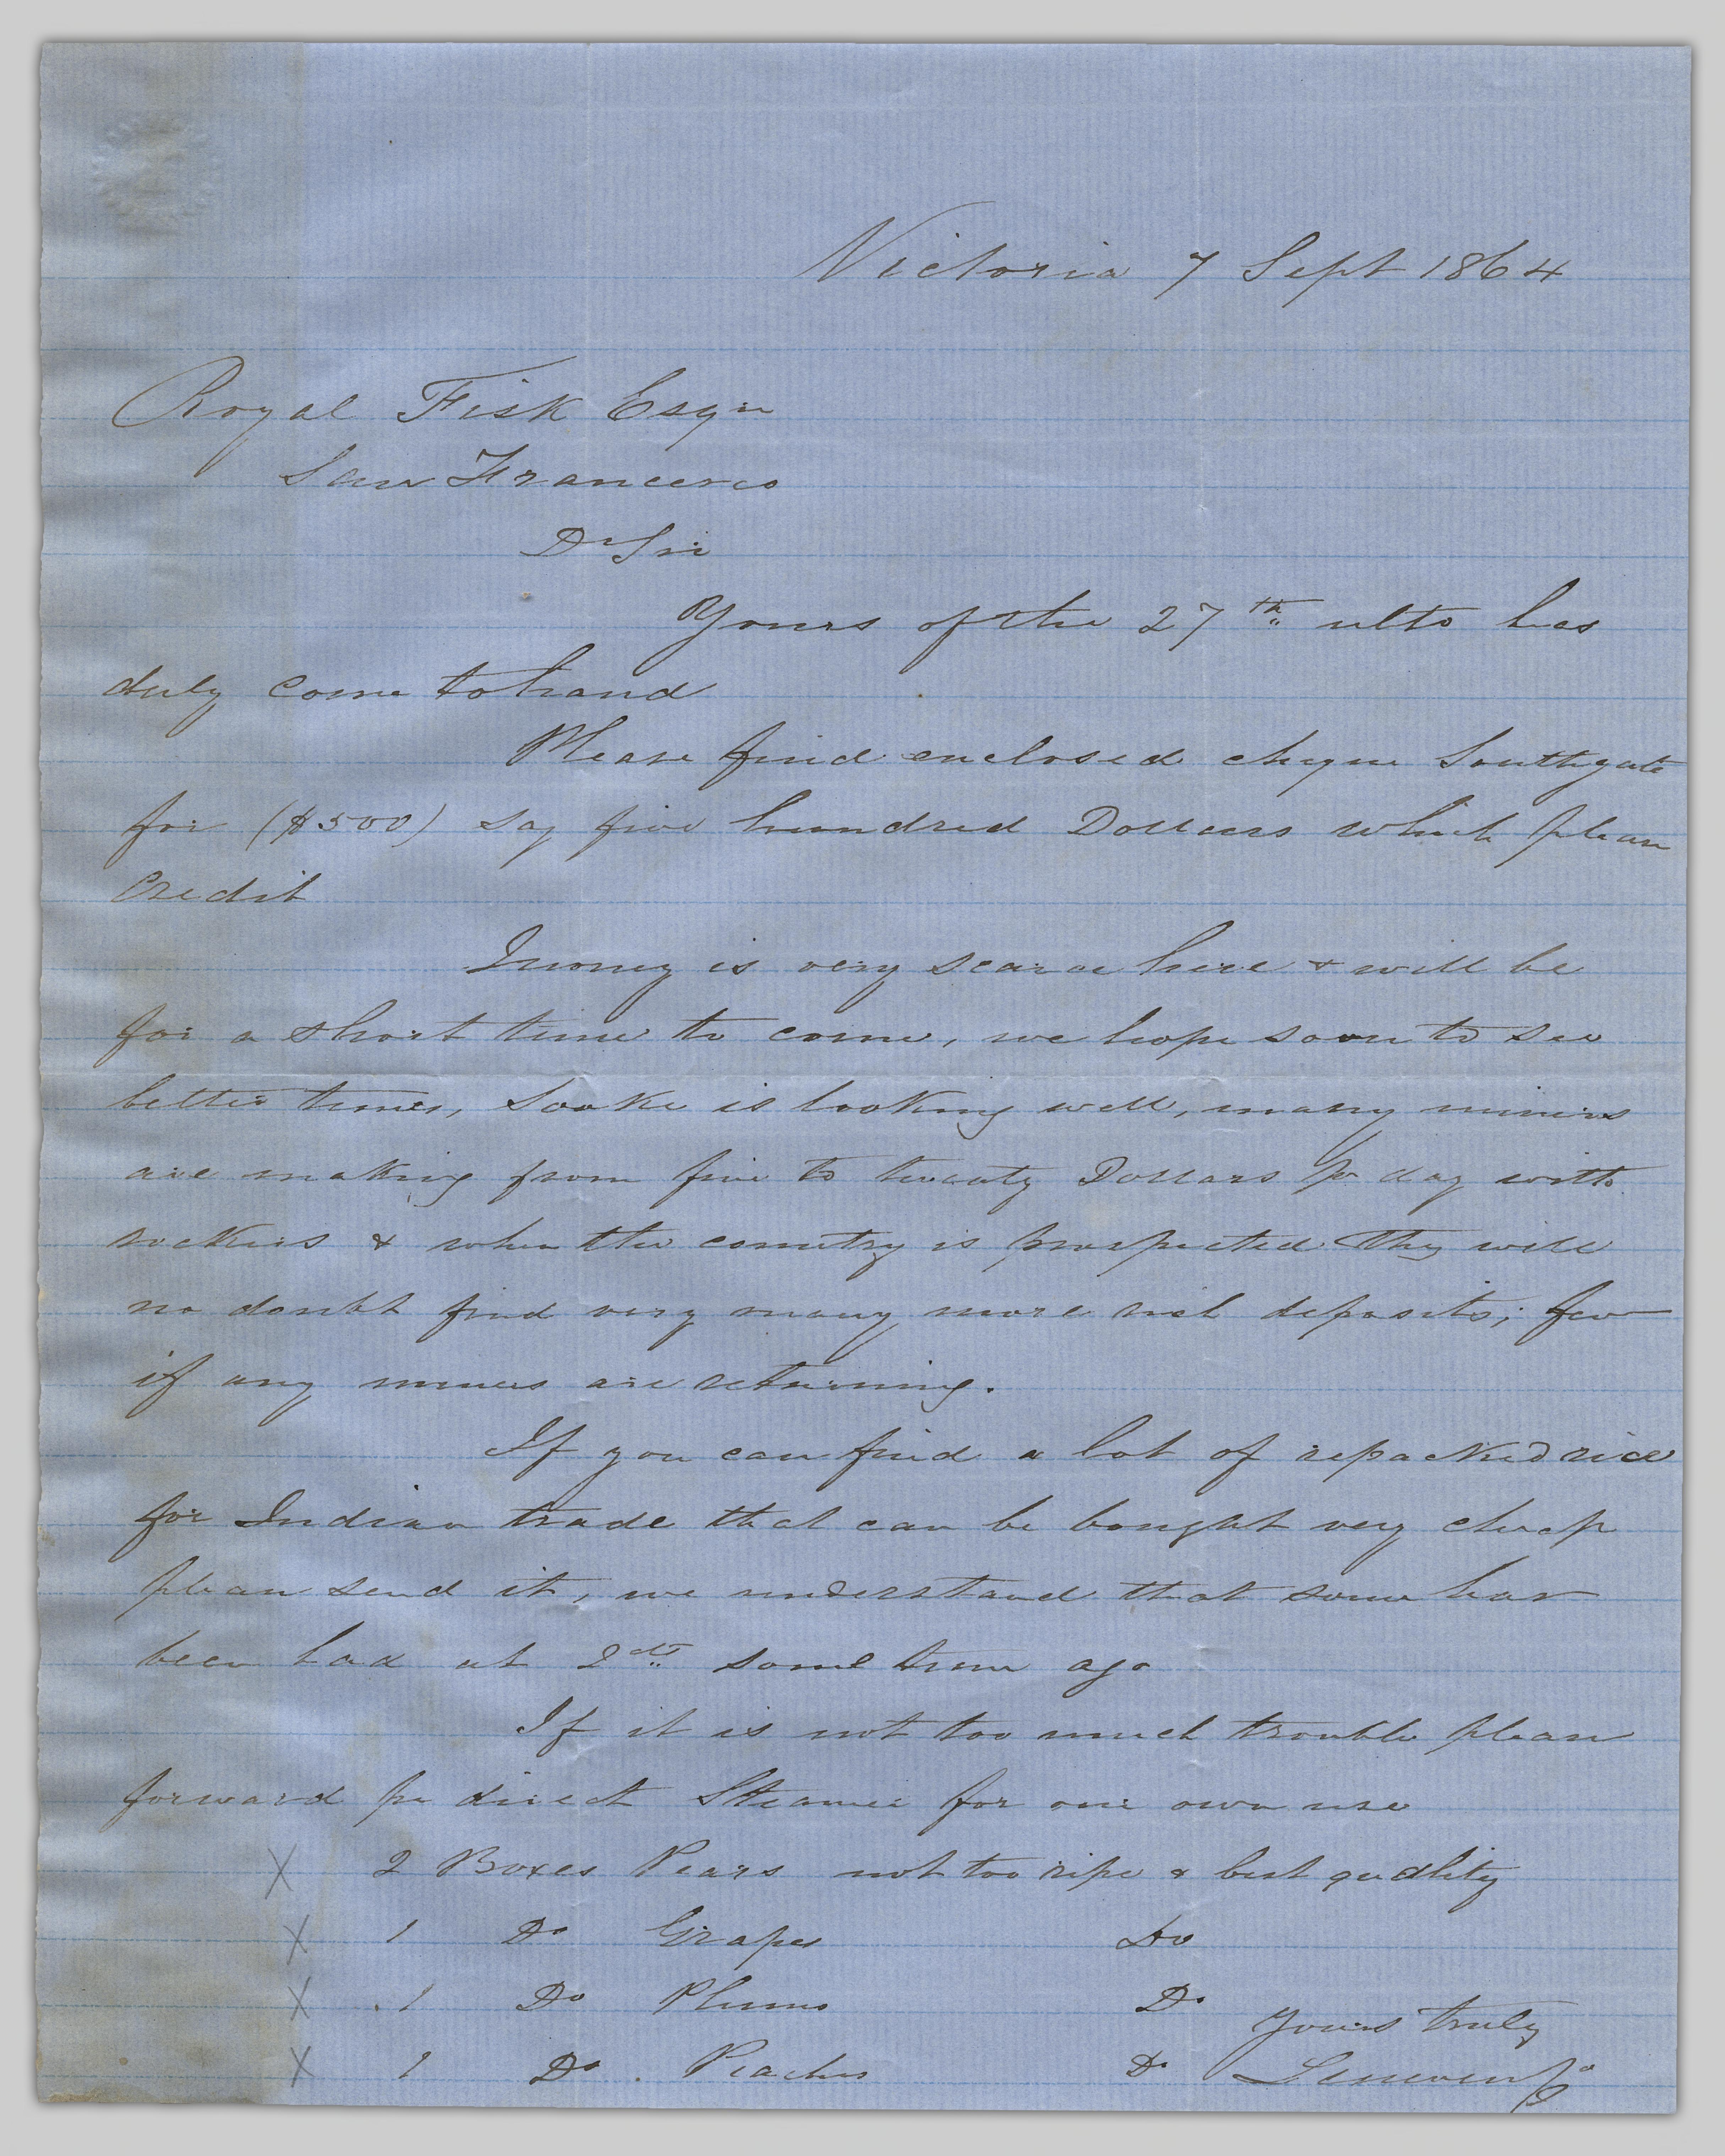 Victoria 7 Sept 1864
Royal Fisk Esqr
San Francisco
Dr Sir
Yours of the 27th ulto has
duly come to hand
Please find enclosed cheque Southgate
for ($500) say five hundred Dollars which please
Credit
Money is very scarce here & will be
for a short time to come, we hope soon to see
better times, Sooke is looking well, many miners
are making from five to twenty Dollars pr day with
rockers & when the country is prospected they will
no doubt find very many more rich deposits; few
if any miners are returning.
If you can find a lot of repacked rice
for Indian trade that can be bought very cheap
please send it, we understand that some has
been had at 2cts some time ago
If it is not too much trouble please
forward pr direct Steamer for our own use
X 2 Boxes Pears not too ripe & best quality
X 1 Do Grapes Do
X 1 Do Plums Do
Yours truly
X 1 Do Peaches Do